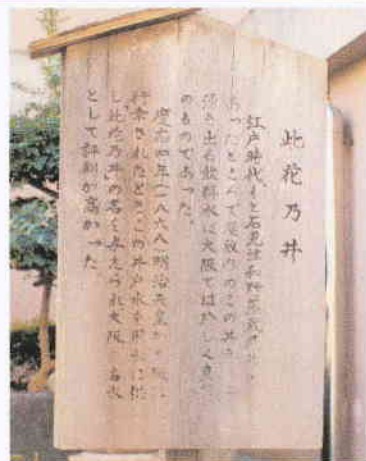 此花乃井
江戸時代、もと石見津和野藩蔵
あったところで屋敷内のこの井戸
湧き出る飲料水は大阪では珍しく良
のものであった。
慶応四年（一八六八）明治天皇が大阪に
行幸されたとき、この井戸水を御用に供
し此花乃井の名を与えられ大阪 名水
として評判が高かった